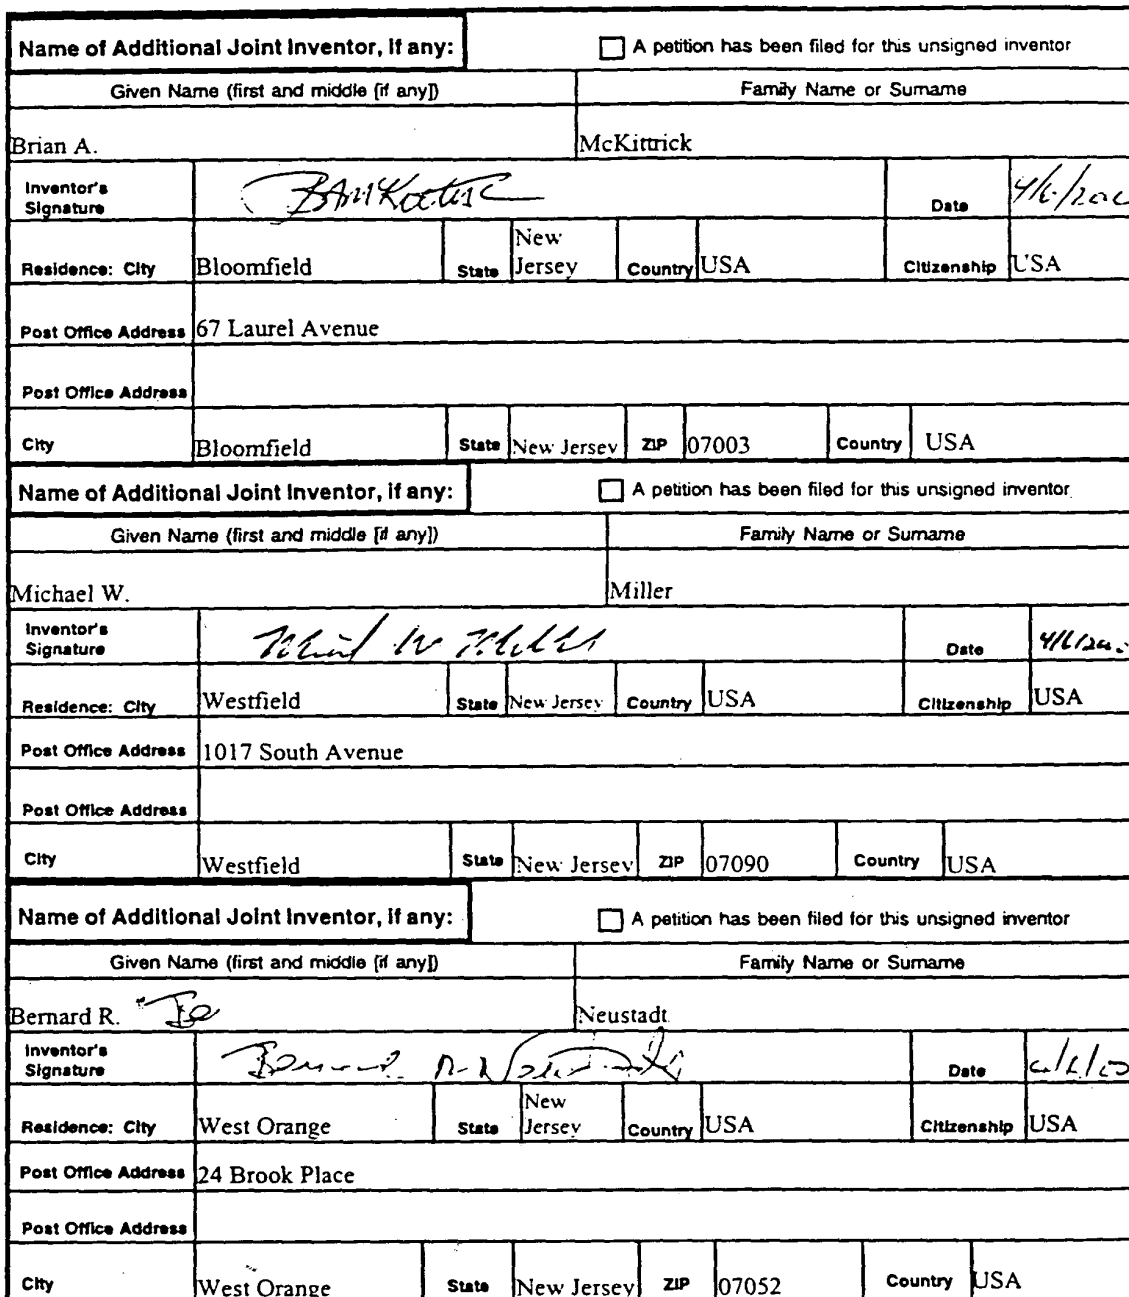 Name of Additional Joint Inventor, if any: A petition has been filed for this unsigned inventor
Given Name (first and middle [if any]) Family Name or Surname
Brian A. McKittrick
Inventor's Signature Date
Residence: City Bloomfield State New Jersey Country USA Citizenship USA
Post Office Address 67 Laurel Avenue
Post Office Address
City Bloomfield State New Jersey ZIP 07003 Country USA
Name of Additional Joint Inventor, if any: A petition has been filed for this unsigned inventor
Given Name (first and middle [if any]) Family Name or Surname
Michael W. Miller
Inventor's Signature Date
Residence: City Westfield State New Jersey Country USA Citizenship USA
Post Office Address 1017 South Avenue
Post Office Address
City Westfield State New Jersey ZIP 07090 Country USA
Name of Additional Joint Inventor, if any: A petition has been filed for this unsigned inventor
Given Name (first and middle [if any]) Family Name or Surname
Bernard R. Neustadt
Inventor's Signature Date
Residence: City West Orange State New Jersey Country USA Citizenship USA
Post Office Address 24 Brook Place
Post Office Address
City West Orange State New Jersey ZIP 07052 Country USA